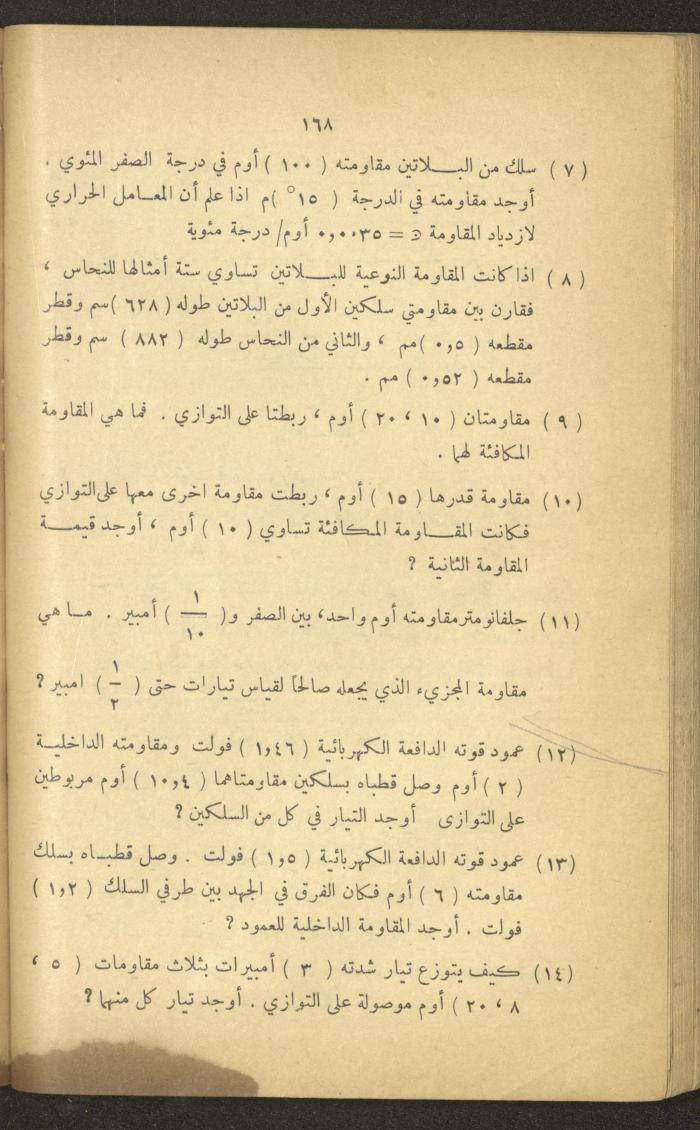 ١٦٨
( ٧ ) سلك من البـلاتين مقاومته ( ١٠٠ ) أوم في درجة الصفر المئوي .
أوجد مقاومته في الدرجة ( ١٥° )م اذا علم أن المعـامل الحراري
لازدياد المقاومة = ٠,٠٠٣٥ أوم/ درجة مئوية
( ٨ ) اذا كانت المقاومة النوعية للبـلاتين تساوي ستة أمثالها للنحاس ،
فقارن بين مقاومتي سلكين الأول من البلاتين طوله ( ٦٢٨ )سم وقطر
مقطعه ( ٠,٥ )مم ، والثاني من النحاس طوله ( ٨٨٢ ) سم وقطر
مقطعه ( ٠,٥٢ ) مم .
( ٩ ) مقاومتان ( ١٠ ، ٢٠ ) أوم ، ربطتا على التوازي . فما هي المقاومة
المكافئة لهما .
(١٠) مقاومة قدرها ( ١٥ ) أوم ، ربطت مقاومة اخرى معها على التوازي
فكانت المقـاومة المكافئة تساوي ( ١٠ ) أوم ، أوجد قيمـة
المقاومة الثانية ؟
(١١) جلفانومتر مقاومته أوم واحد، بين الصفر و( ١/١٠ ) أمبير . مـا هي
مقاومة المجزيء الذي يجعله صالحاً لقياس تيارات حتى ( ١/٢ ) امبير ؟
(١٢) عمود قوته الدافعة الكهربائية ( ١,٤٦ ) فولت ومقاومته الداخليـة
( ٢ ) أوم وصل قطباه بسلكين مقاومتاهما ( ١٠,٤ ) أوم مربوطين
على التوازى أوجد التيار في كل من السلكين ؟
(١٣) عمود قوته الدافعة الكهربائية ( ١,٥ ) فولت . وصل قطبـاه بسلك
مقاومته ( ٦ ) أوم فكان الفرق في الجهد بين طرفي السلك ( ١,٢ )
فولت . أوجد المقاومة الداخلية للعمود ؟
(١٤) كيف يتوزع تيار شدته ( ٣ ) أمبيرات بثلاث مقاومات ( ٥ ،
٨ ، ٢٠ ) أوم موصولة على التوازي . أوجد تيار كل منهما ؟